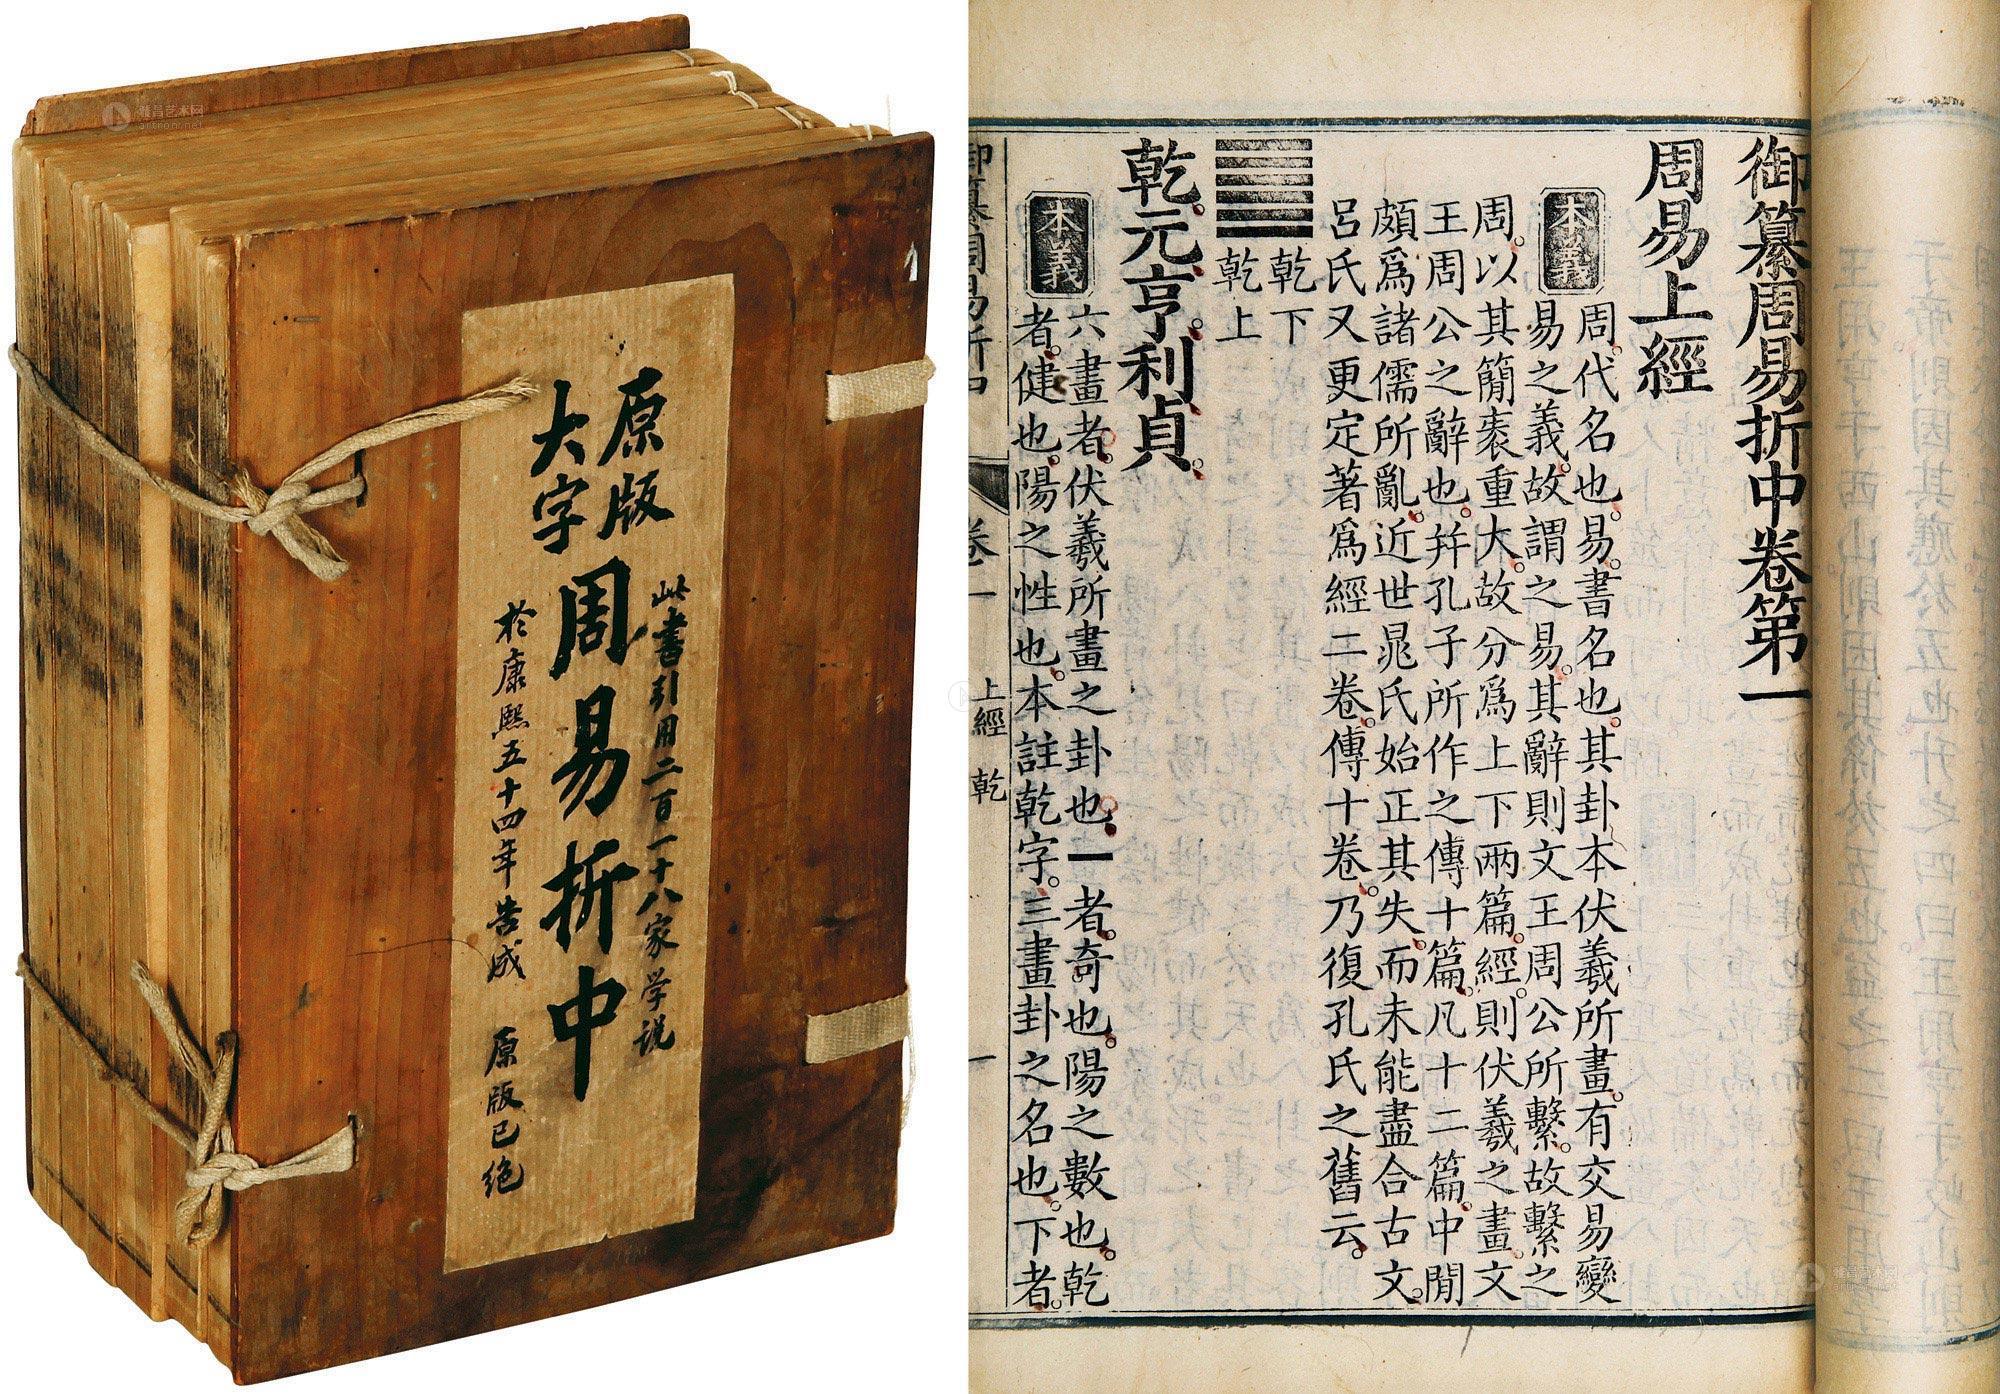 原版
大字
周易折中
此書引用二百一十八家学说
於康熙五十四年告成 原版已绝
御纂周易折中卷第一
周易上經
本義
周代名也易書名也其卦本伏羲所畫有交易變
易之義故謂之易其辭則文王周公所繫故繫之
周以其簡袠重大故分爲上下兩篇經則伏羲之畫文
王周公之辭也幷孔子所作之傳十篇凡十二篇中閒
頗爲諸儒所亂近世晁氏始正其失而未能盡合古文
呂氏又更定著爲經二卷傳十卷乃復孔氏之舊云
乾下
乾上
乾元亨利貞
本義
六畫者伏羲所畫之卦也一者奇也陽之數也乾
者健也陽之性也本註乾字三畫卦之名也下者
御纂周易折中
卷一
上經 乾
一
雅昌艺术网
artron.net